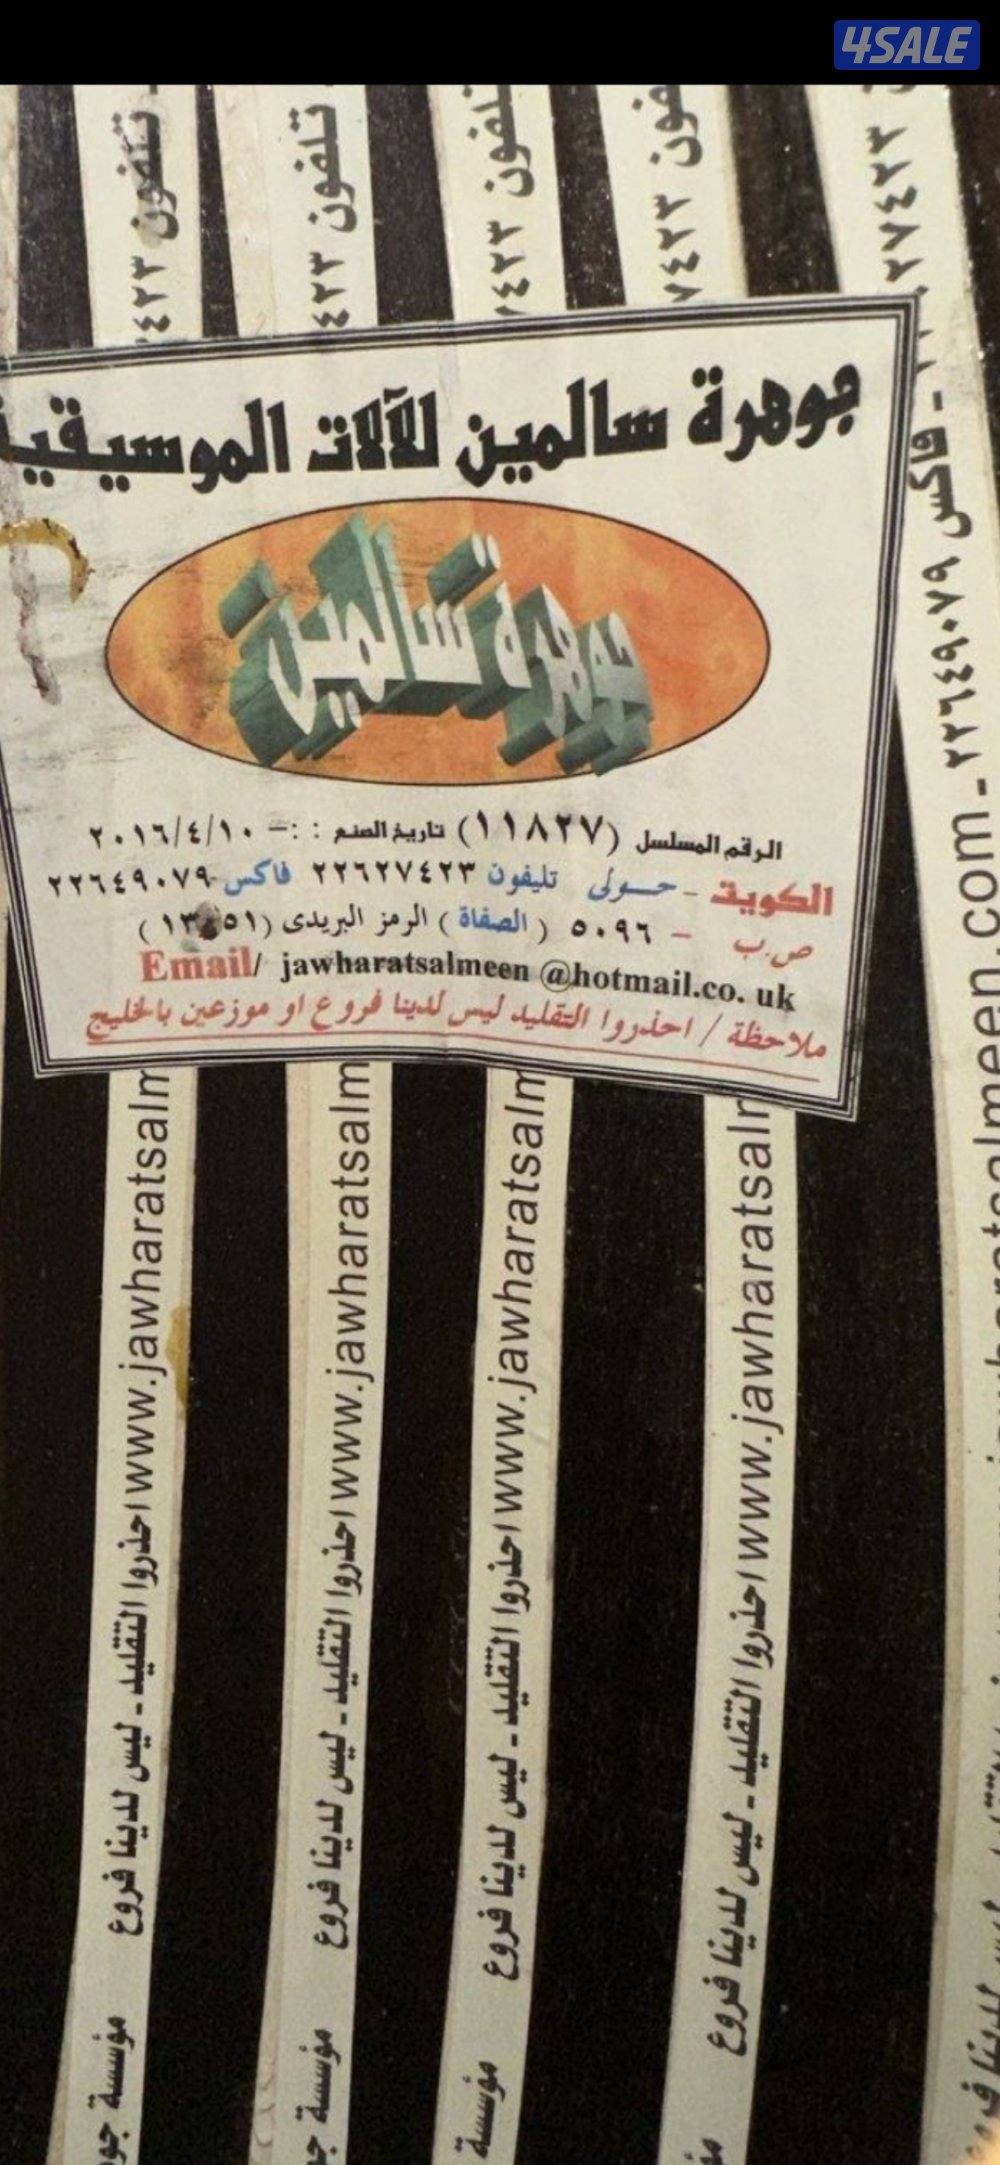 4SALE
جوهرة سالمين للآلات الموسيقية
جوهرة سالمين
الرقم المسلسل (١١٨٢٧) تاريخ الصنع : :- ٢٠١٦/٤/١٠
الكويت - حولى تليفون ٢٢٦٢٧٤٢٣ فاكس ٢٢٦٤٩٠٧٩
ص.ب - ٥٠٩٦ (الصفاة) الرمز البريدى
Email/ jawharatsalmeen @hotmail.co. uk
ملاحظة / احذروا التقليد ليس لدينا فروع او موزعين بالخليج
تلفون ٤٢٣
www.jawharatsalm
احذروا التقليد - ليس لدينا فروع
مؤسسة جو
تلفون ٤٢٣
www.jawharatsalm
احذروا التقليد - ليس لدينا فروع
مؤسسة جو
تلفون ٤٢٣
www.jawharatsalm
احذروا التقليد - ليس لدينا فروع
مؤسسة
٧٤٢٣
www.jawharatsalm
احذروا التقليد - ليس لدينا فروع
٢٧٤٢٣ - فاكس ٢٢٦٤٩٠٧٩ - jawharatsalmeen.com